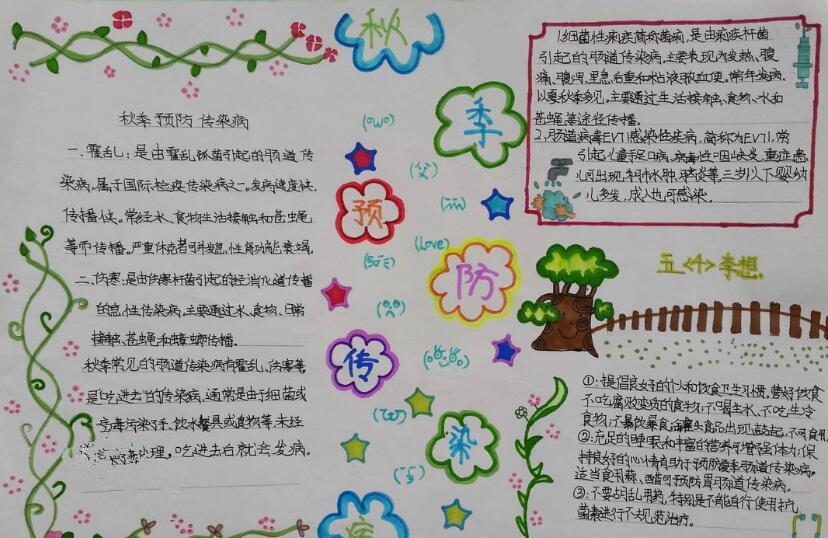 秋
季
预
防
传
染
病
秋季预防传染病
一、霍乱：是由霍乱弧菌引起的肠道传
染病，属于国际检疫传染病之一。发病速度快.
传播快。常经水、食物生活接触和苍蝇
等而传播。严重休克者可并发急性肾功能衰竭.
二、伤寒：是由伤寒杆菌引起的经消化道传播
的急性传染病，主要通过水、食物、日常
接触、苍蝇和蟑螂传播.
秋季常见的肠道传染病有霍乱、伤寒等
是"吃进去"的传染病，通常是由于细菌或
病毒污染了手、饮水餐具或食物等，未经
处理。吃进去后就会发病。
(Love)
1.细菌性痢疾简称菌痢，是由痢疾杆菌
引起的肠道传染病，主要表现为发热、腹
痛、腹泻、里急后重和粘液脓血便，常年发病.
以夏秋季多见，主要通过生活接触、食物、水和
苍蝇等途径传播.
2.肠道病毒EV71感染性疾病，简称为EV71，常
引起儿童手足口病、病毒性咽峡炎，重症患
儿可出现肺水肿、脑炎等，三岁以下婴幼
儿多发，成人也可感染.
五<4>李想.
①：提倡良好的个人和饮食卫生习惯。营好饮食
不吃腐败变质的食物；不喝生水、不吃生冷
食物；不暴饮暴食；罐头食品出现鼓起，不可食用
②：充足的睡眠和丰富的营养可增强体力；保
持良好的心情有助于预防夏季肠道传染病。
适当食用蒜、醋可预防胃肠道传染病。
③：不要胡乱用药，特别是不能自行使用抗
菌素进行不规范治疗.